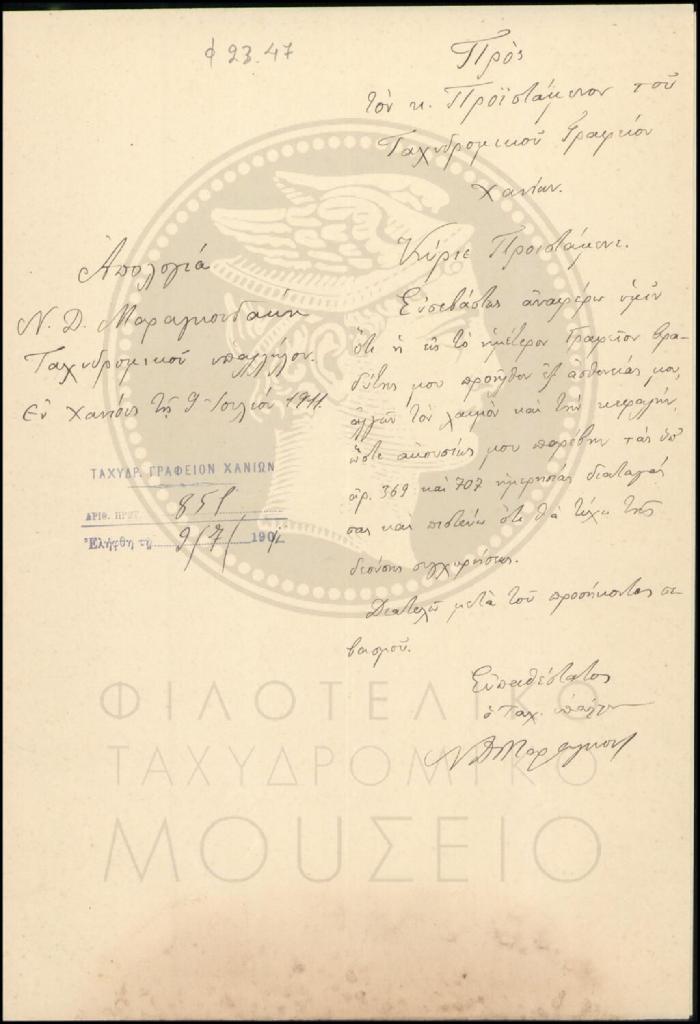 φ 23.47
Πρὸς
τὸν κ. Προϊστάμενον τοῦ
Ταχυδρομικοῦ Γραφείου
Χανίων.
Ἀπολογία
Ν. Δ. Μαραγκουδάκη
Ταχυδρομικοῦ ὑπαλλήλου.
Ἐν Χανίοις τῇ 9 Ἰουλίου 1911.
ΤΑΧΥΔΡ. ΓΡΑΦΕΙΟΝ ΧΑΝΙΩΝ
ΑΡΙΘ. ΠΡΩΤ. 851
Ἐλήφθη τῇ 9/7/190
Κύριε Προιστάμενε.
Εὐσεβάστως ἀναφέρω ὑμῖν
ὅτι ἡ εἰς τὸ ἡμέτερον Γραφεῖον βρα-
δύτης μου προῆλθεν ἐξ ἀσθενείας μου,
ἀλγῶν τὸν λαιμὸν καὶ τὴν κεφαλήν,
ὥστε ἀκουσίως μου παρέβην τὰς ὑπ'
ἀρ. 369 καὶ 707 ἡμερησίας διαταγάς
σας καὶ πιστεύω ὅτι θὰ τύχω τῆς
δεούσης συγχωρήσεως.
Διατελῶ μετὰ τοῦ προσήκοντος σε-
βασμοῦ.
Εὐπειθέστατος
ὁ Ταχ. ὑπάλληλος
Ν Δ Μαραγκου
ΦΙΛΟΤΕΛΙΚΟ
ΤΑΧΥΔΡΟΜΙΚΟ
ΜΟΥΣΕΙΟ